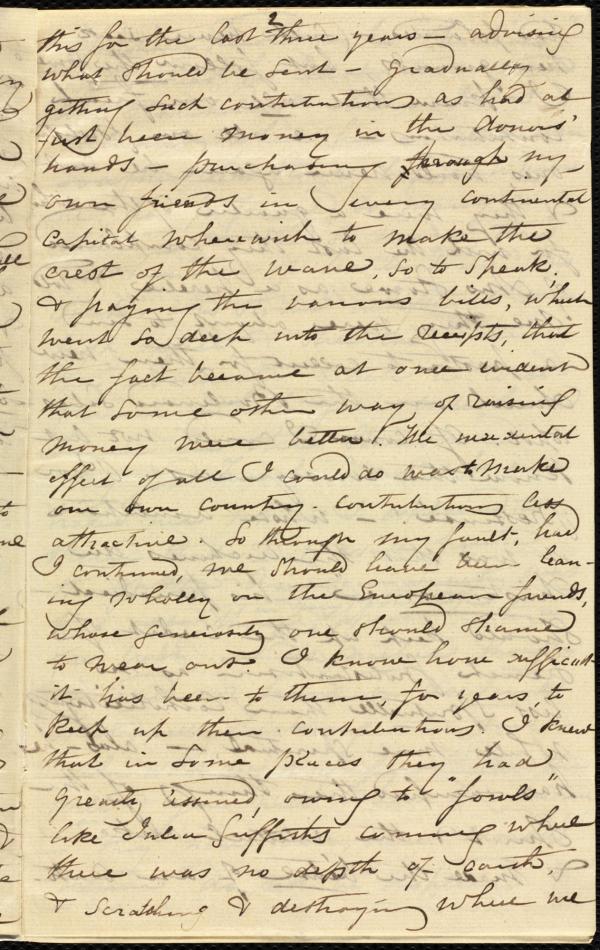 2
this for the last three years — advising
what should be sent — gradually
getting such contributions as had at
first been money in the donors'
hands — purchasing through my
own friends in every continental
Capital wherewith to make the
crest of the wave, so to speak,
& paying the various bills, which
went so deep into the receipts, that
the fact became at once evident
that some other way of raising
money were better. The incidental
effect of all I could do was to make
our own country - contributions less
attractive. So through my fault, had
I continued, we should have been lean-
ing wholly on the European friends,
whose generosity one should shame
to wear out. I know how difficult
it has been to them, for years, to
keep up their contributions. I knew
that in some places they had
greatly lessened, owing to "fowls"
like Julia Griffiths coming where
there was no depth of earth,
& scratching & destroying where we